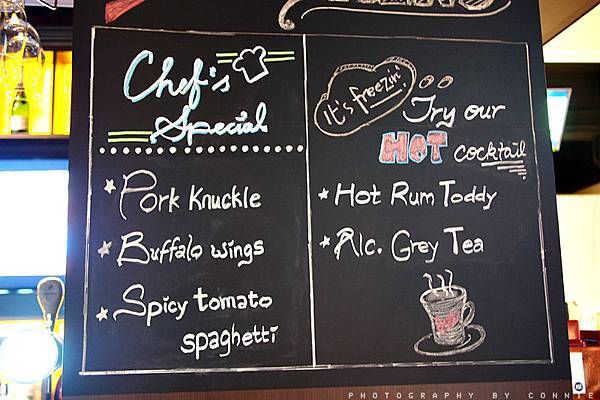 Chef's
Special
★ Pork Knuckle
★ Buffalo wings
★ Spicy tomato
spaghetti
It's freezin'
Try our
HOT cocktail
★ Hot Rum Toddy
★ Alc. Grey Tea
PHOTOGRAPHY BY CONNIE